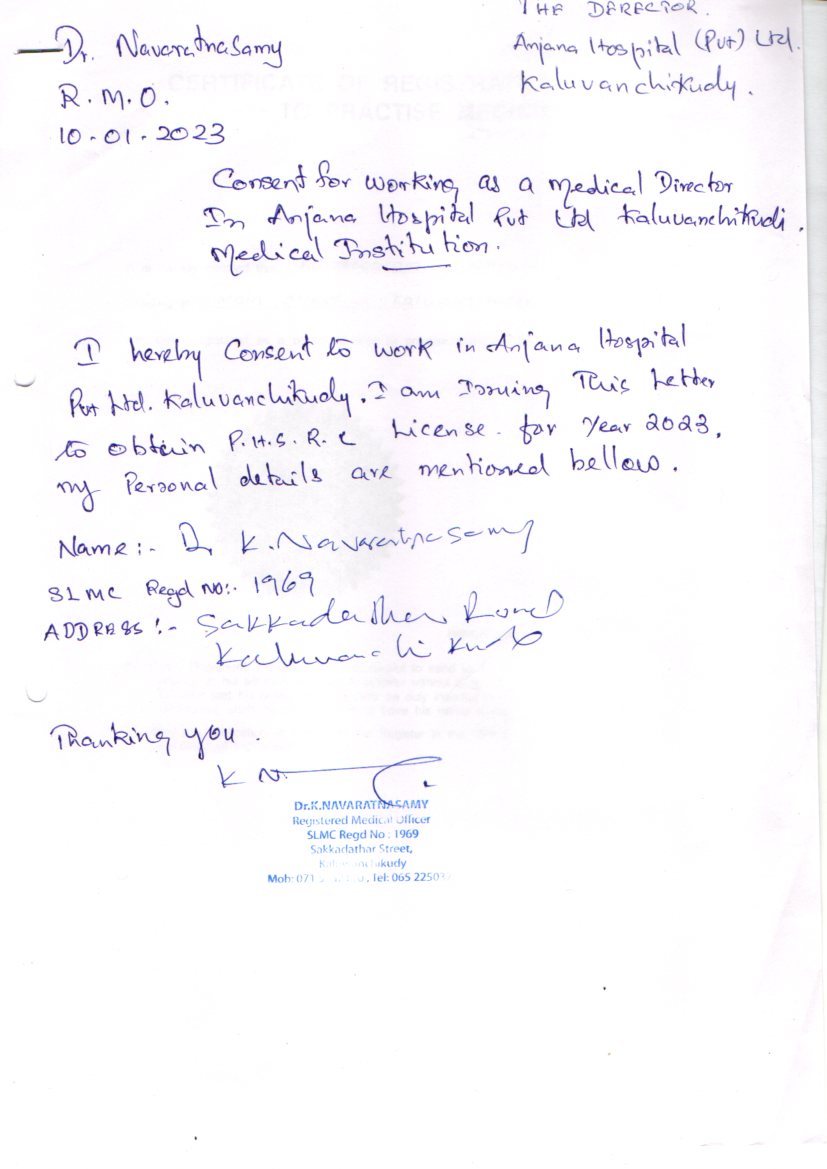 THE DERECTOR.
Anjana Hospital (Pvt) Ltd.
Kaluvanchikudy.
Dr. Navaratnasamy
R.M.O.
10-01-2023
Consent for working as a medical Director
In Anjana Hospital Pvt Ltd Kaluvanchikudi.
Medical Institution.
I hereby Consent to work in Anjana Hospital
Pvt Ltd. Kaluvanchikudy. I am Issuing This Letter
to obtain P.H.S.R.C License. for Year 2023.
my Personal details are mentioned bellow.
Name:- Dr K. Navaratnasamy
SLMC Regd No:. 1969
ADDRESS :- Sakkadathar Road
Thanking you.
K N
Dr.K.NAVARATNASAMY
Registered Medical Officer
SLMC Regd No : 1969
Sakkadathar Street,
Mob: 071 Tel: 065